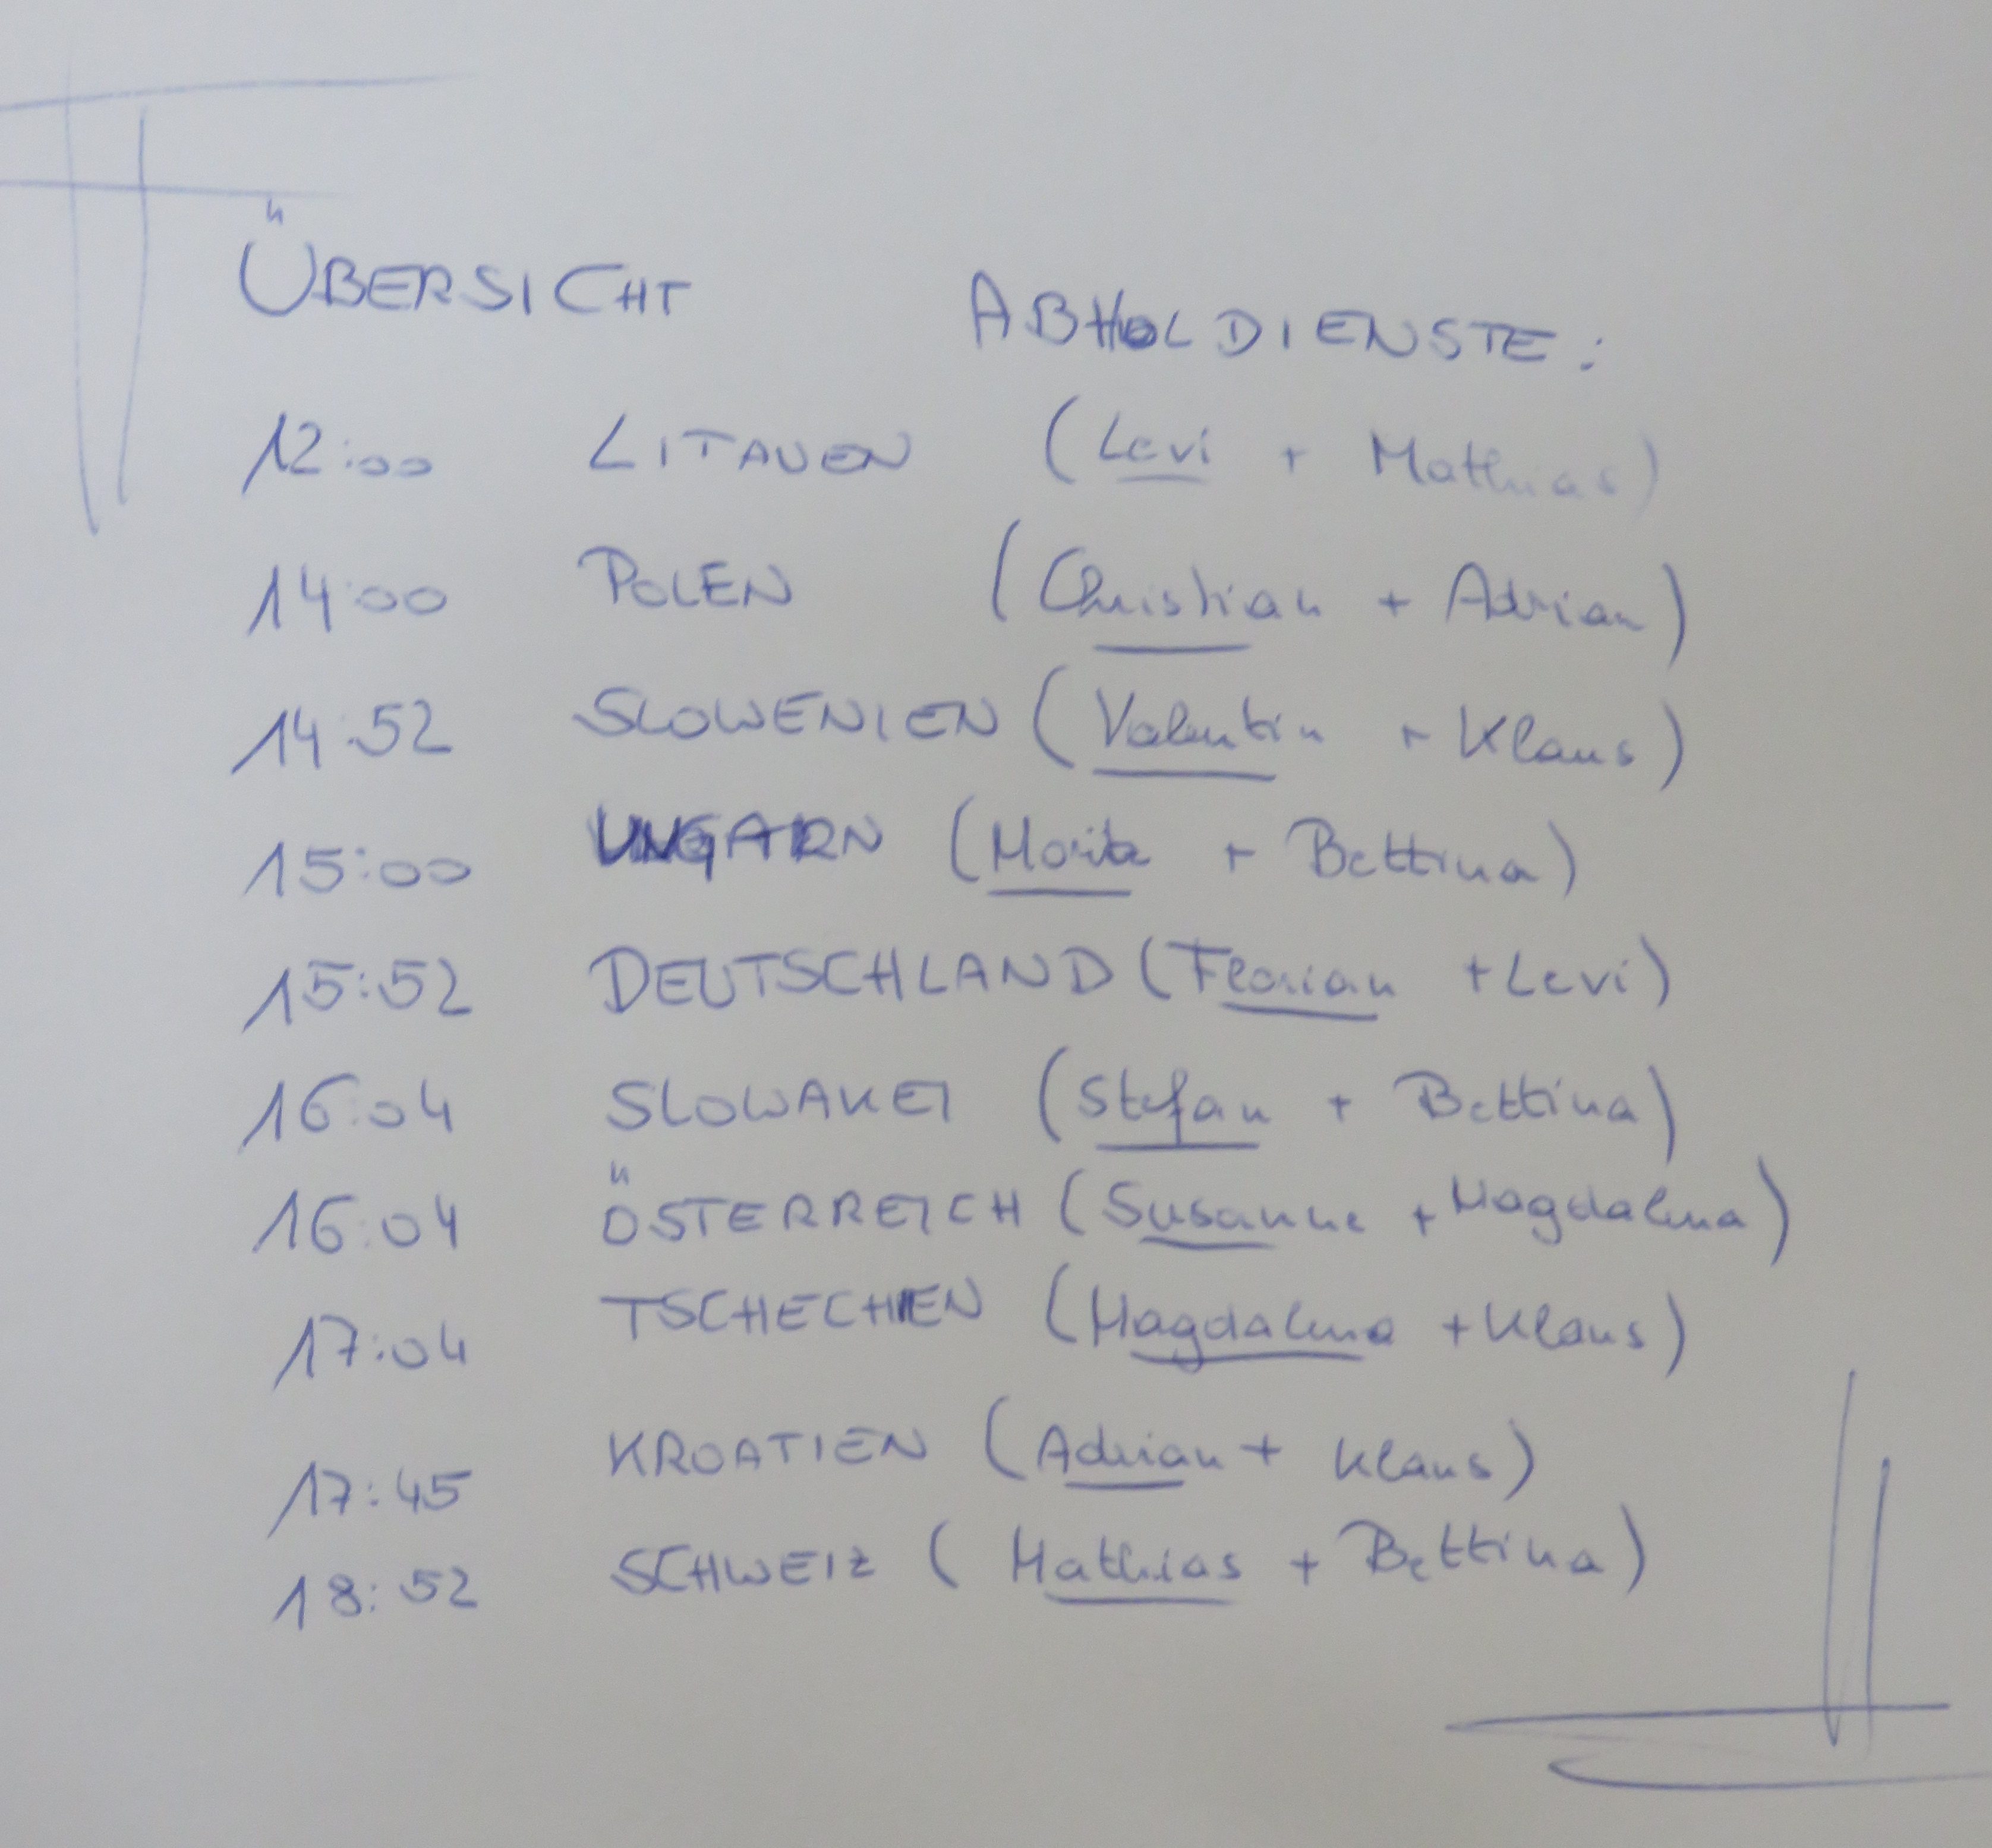 ÜBERSICHT ABHOLDIENSTE:
12:00 LITAUEN (Levi + Mathias)
14:00 POLEN (Christian + Adrian)
14:52 SLOWENIEN (Valentin + Klaus)
15:00 UNGARN (Moritz + Bettina)
15:52 DEUTSCHLAND (Florian + Levi)
16:04 SLOWAKEI (Stefan + Bettina)
16:04 ÖSTERREICH (Susanne + Magdalena)
17:04 TSCHECHIEN (Magdalena + Klaus)
17:45 KROATIEN (Adrian + Klaus)
18:52 SCHWEIZ (Mathias + Bettina)